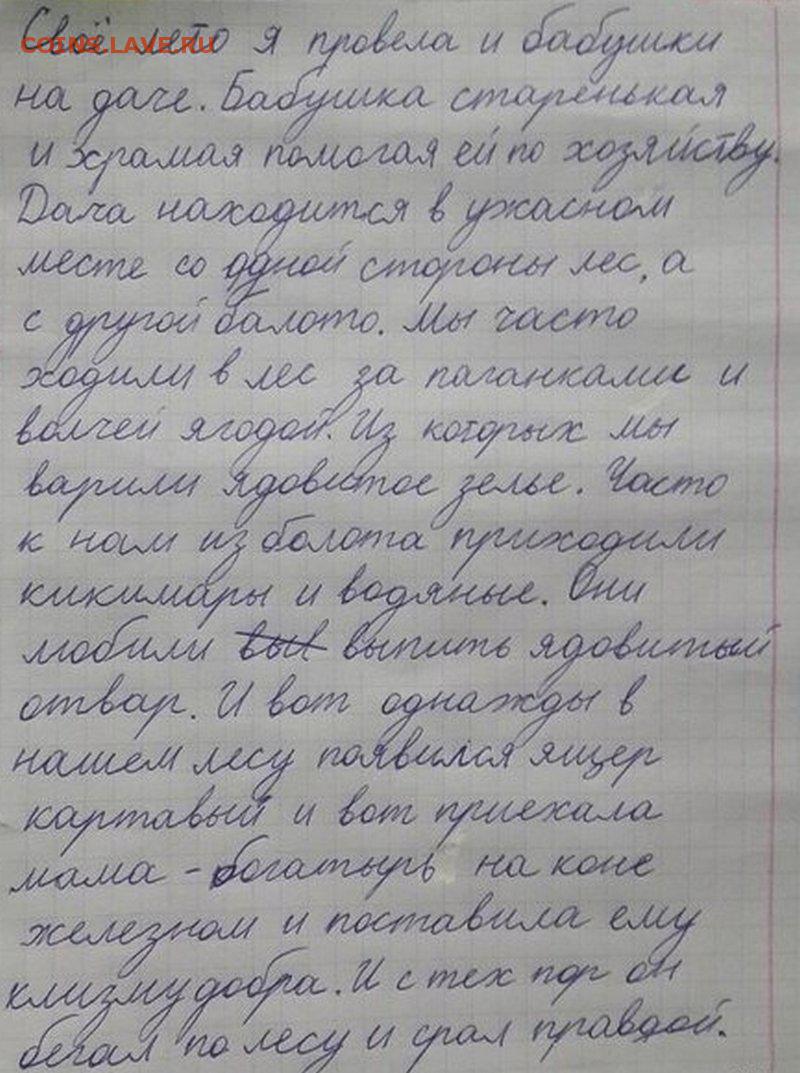 COINS.LAVE.RU
Своё лето я провела и бабушки
на даче. Бабушка старенькая
и храмая помогая ей по хозяйству.
Дача находится в ужасном
месте со одной стороны лес, а
с другой балото. Мы часто
ходили в лес за паганками и
волчей ягодой. Из которых мы
варили ядовитое зелье. Часто
к нам из болота приходили
кикимары и водяные. Они
любили выпить ядовитый
отвар. И вот однажды в
нашем лесу появился ящер
картавый и вот приехала
мама - богатырь на коне
железном и поставила ему
клизму добра. И с тех пор он
бегал по лесу и срал правдой.